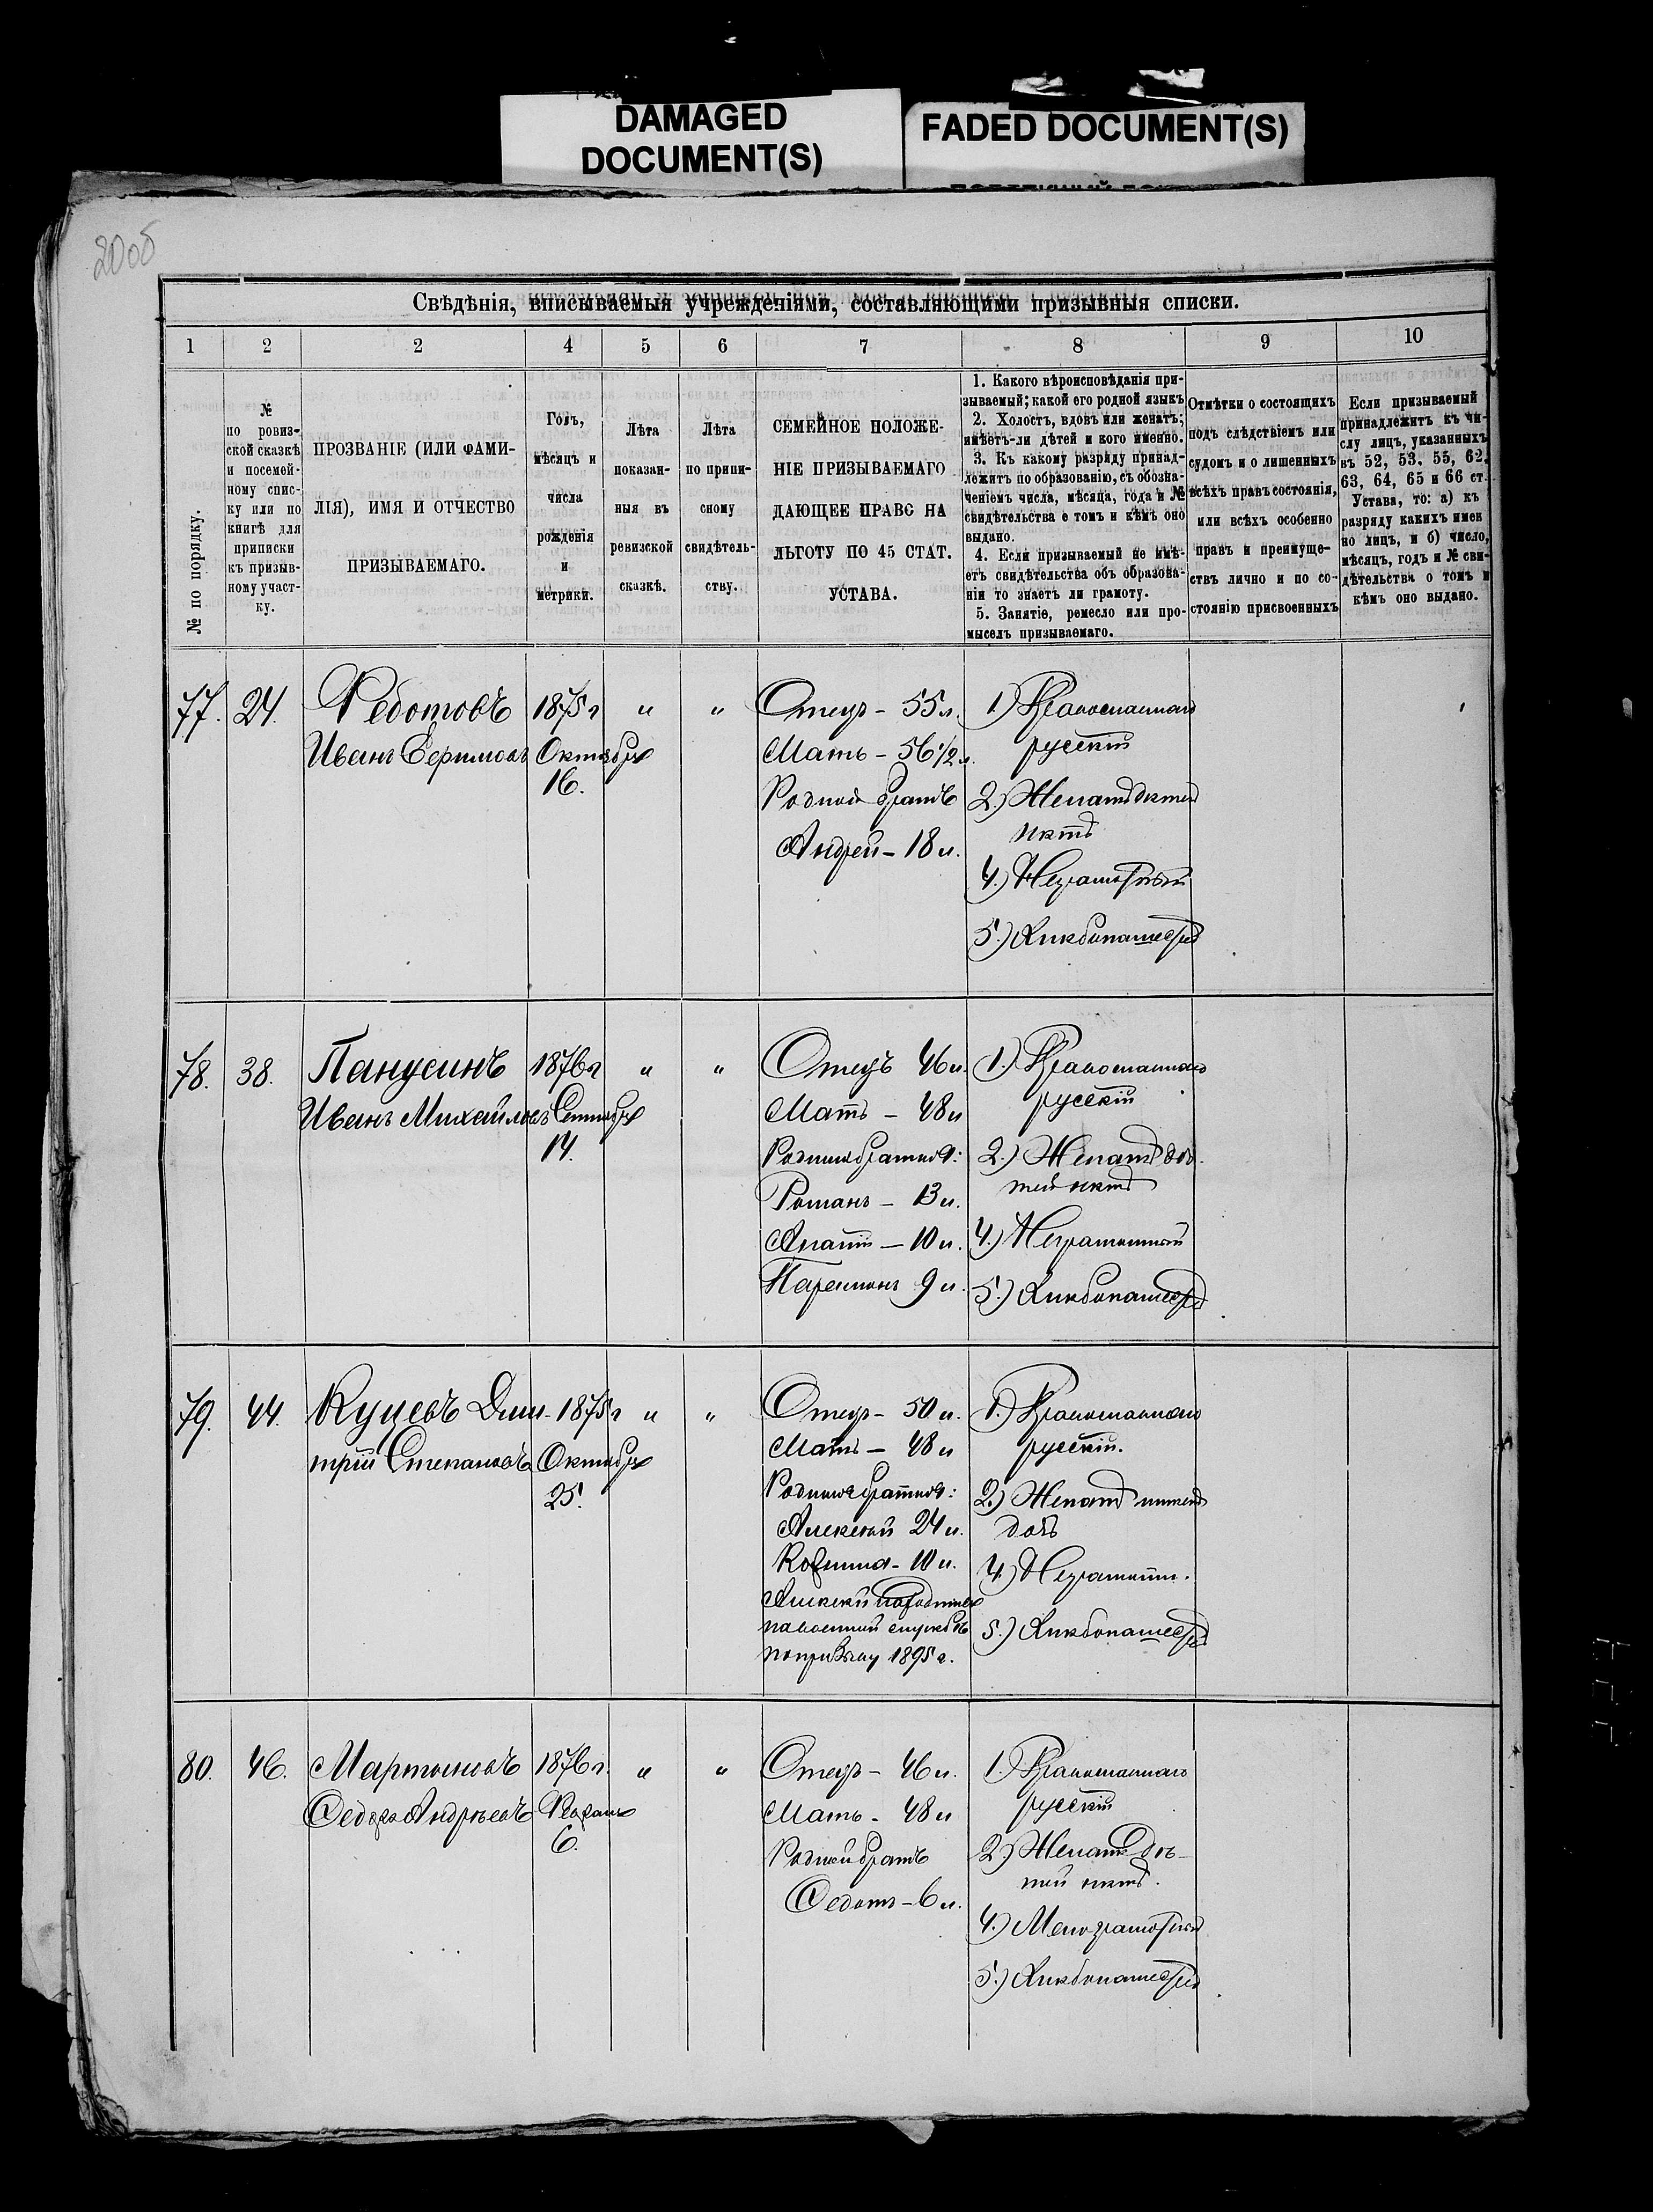 DAMAGED
DOCUMENT(S)
FADED DOCUMENT(S)
200об
Свѣдѣнія, вписываемыя учрежденіями, составляющими призывныя списки.
1 2 2 4 5 6 7 8 9 10
№ по порядку.
№
по ровиз-
ской сказкѣ
и посемей-
ному спис-
ку или по
книгѣ для
приписки
къ призыв-
ному участ-
ку.
ПРОЗВАНІЕ (ИЛИ ФАМИ-
ЛІЯ), ИМЯ И ОТЧЕСТВО
ПРИЗЫВАЕМАГО.
Годъ,
мѣсяцъ и
числа
рожденія
и
метрики.
Лѣта
показан-
ныя въ
ревизской
сказкѣ.
Лѣта
по припи-
сному
свидѣтель-
ству.
СЕМЕЙНОЕ ПОЛОЖЕ-
НІЕ ПРИЗЫВАЕМАГО
ДАЮЩЕЕ ПРАВО НА
ЛЬГОТУ ПО 45 СТАТ.
УСТАВА.
1. Какого вѣроисповѣданія при-
зываемый; какой его родной языкъ
2. Холостъ, вдовъ или женатъ;
имѣетъ-ли дѣтей и кого именно.
3. Къ какому разряду принад-
лежитъ по образованію, съ обозна-
ченіемъ числа, мѣсяца, года и №
свидѣтельства о томъ и кѣмъ оно
выдано.
4. Если призываемый не имѣ-
етъ свидѣтельства объ образова-
ніи то знаетъ ли грамоту.
5. Занятіе, ремесло или про-
мыселъ призываемаго.
Отмѣтки о состоящихъ
подъ слѣдствіемъ или
судомъ и о лишенныхъ
всѣхъ правъ состоянія,
или всѣхъ особенно
правъ и преимуще-
ствъ лично и по со-
стоянію присвоенныхъ
Если призываемый
принадлежитъ къ чи-
слу лицъ, указанныхъ
въ 52, 53, 55, 62,
63, 64, 65 и 66 ст.
Устава, то: а) къ
разряду какихъ имен
но лицъ, и б) число,
мѣсяцъ, годъ и № сви-
дѣтельства о томъ и
кѣмъ оно выдано.
77. 24. Ѳедотовъ 1875 г " "
Иванъ Октября
16.
Отецъ - 55 л.
Мать - 56 1/2 л.
Родной братъ
Андрей - 18 л.
1.) Православнаго
русскій
2.) Женатъ дѣтей
нѣтъ
4.) Неграмотный
5.) Хлѣбопашество
78. 38. Панусинъ 1876 г " "
Иванъ Михайловъ Сентября
14.
Отецъ 46 л.
Мать - 48 л
Родные братья:
Романъ - 13 л.
Ипатій - 10 л.
Парамонъ 9 л.
1.) Православнаго
русскій
2.) Женатъ дѣ-
тей нѣтъ
4.) Неграмотный
5.) Хлѣбопашество
79. 44. Куцевъ Дми- 1875 г " "
трій Степановъ Октября
25.
Отецъ - 50 л.
Мать - 48 л
Родные братья:
Алексѣй 24 л.
Козьма - 10 л.
Алексѣй находится
на военной службѣ
по призыву 1895 г.
1.) Православнаго
русскій.
2.) Женатъ имѣетъ
дочь
4.) Неграмотн.
5.) Хлѣбопашество
80. 46. Мартыновъ 1876 г. " "
Ѳедоръ Андрѣевъ Февраля
6.
Отецъ - 46 л.
Мать - 48 л
Родной братъ
Ѳедотъ - 6 л.
1.) Православнаго
русскій
2.) Женатъ дѣ-
тей нѣтъ.
4.) Малограмотный
5.) Хлѣбопашество